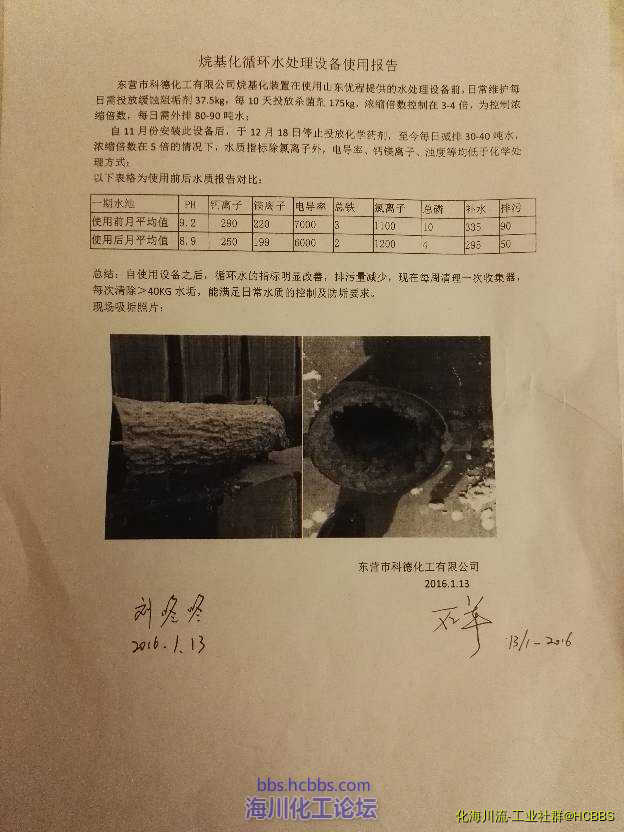 烷基化循环水处理设备使用报告
东营市科德化工有限公司烷基化装置在使用山东优程提供的水处理设备前，日常维护每
日需投放缓蚀阻垢剂37.5kg，每10天投放杀菌剂175kg，浓缩倍数控制在3-4倍，为控制浓
缩倍数，每日需外排80-90吨水；
自11月份安装此设备后，于12月18日停止投放化学药剂，至今每日减排30-40吨水，
浓缩倍数在5倍的情况下，水质指标除氯离子外，电导率、钙镁离子、浊度等均低于化学处
理方式；
以下表格为使用前后水质报告对比：
一期水池 PH 钙离子 镁离子 电导率 总铁 氯离子 总磷 补水 排污
使用前月平均值 9.2 290 220 7000 3 1100 10 335 90
使用后月平均值 8.9 250 199 6000 2 1200 4 295 50
总结：自使用设备之后，循环水的指标明显改善，排污量减少，现在每周清理一次收集器，
每次清除≥40KG水垢，能满足日常水质的控制及防垢要求。
现场吸垢照片：
东营市科德化工有限公司
2016.1.13
2016.1.13
13/1-2016
bbs.hcbbs.com
海川化工论坛
化海川流-工业社群@HCBBS